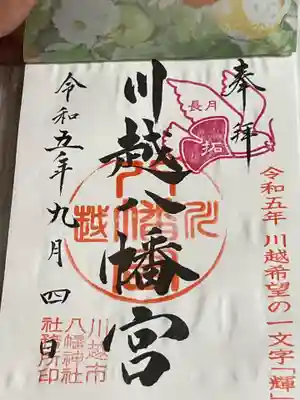 奉拝
長月
拓
令和五年 川越希望の一文字「輝」
川越八幡宮
令和五年九月四日
川越市
八幡神社
社務所印